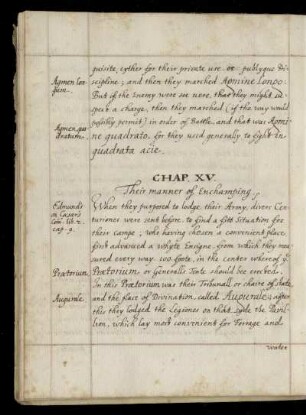 quisite, eyther for their private use or publyque di-
scipline; and then they marched Agmine Longo.
But if the Enemy were soe nere, that they might su-
spect a charge, then they marched (if the way would
possibly permit) in order of Battle, and that was Agmi-
ne quadrato. for they used generally to fight in
quadrata acie.
Agmen Lon-
gum.
Agmen qua-
dratum.
CHAP. XV.
Their manner of Enchamping.
When they purposed to lodge their Army, divers Centu-
rions were sent before to find a fitt Situation for
their campe, who having chosen a convenient place,
first advanced a whyte Ensigne, from which they mea-
sured every way 100. foote, in the center whereof ye
Prætorium, or Generalls Tente should be erected.
In this Prætorium was their Tribunall or chaire of state,
and the place of Divination, called Augurale; after
this they lodged the Legiones on that syde the Pavil-
lion, which lay most convenient for Forrage and
water
Edmunds
on Cæsars
Com. lib. 2.
cap. 9.
Prætorium.
Augurale.